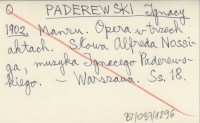 Q PADEREWSKI Ignacy
1902. Manru. Opera w trzech
aktach. Słowa Alfreda Nossi-
ga, muzyka Ignacego Paderews-
kiego. — Warszawa. Ss. 18.